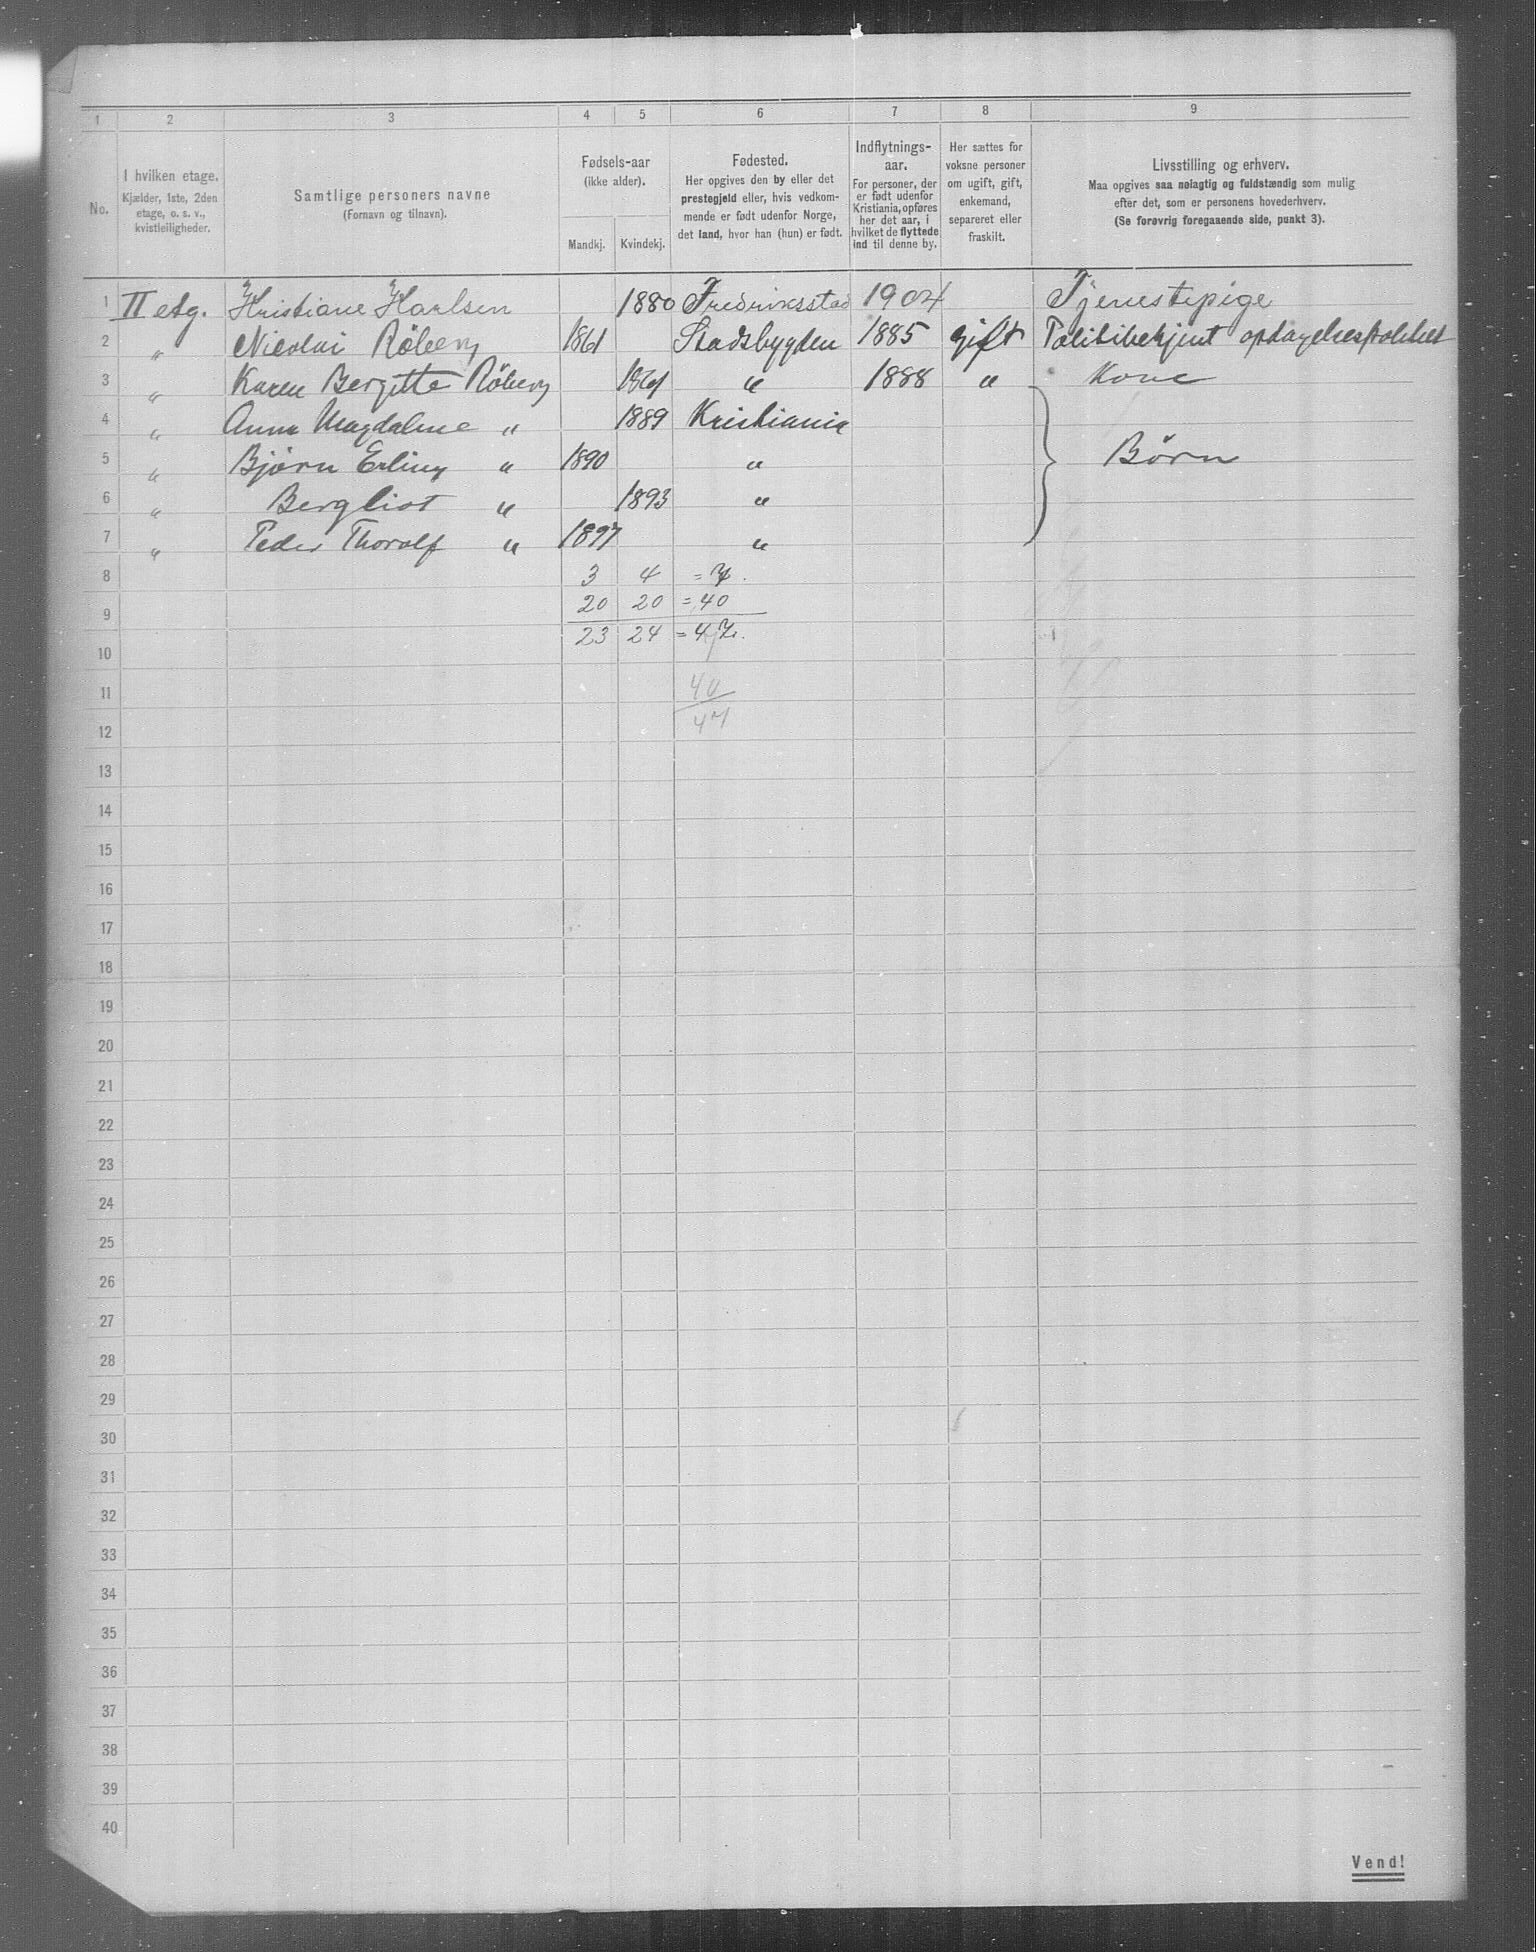 1 2 3 4 5 6 7 8 9
No. I hvilken etage. Kjælder, 1ste, 2den etage, o. s. v., kvistleiligheder.
Samtlige personers navne (Fornavn og tilnavn).
Fødsels-aar (ikke alder). Mandkj. Kvindekj.
Fødested. Her opgives den by eller det prestegjeld eller, hvis vedkommende er født udenfor Norge, det land, hvor han (hun) er født.
Indflytnings-aar. For personer, der er født udenfor Kristiania, opføres her det aar, i hvilket de flyttede ind til denne by.
Her sættes for voksne personer om ugift, gift, enkemand, separeret eller fraskilt.
Livsstilling og erhverv. Maa opgives saa nøiagtig og fuldstændig som mulig efter det, som er personens hovederhverv. (Se forøvrig foregaaende side, punkt 3).
1 II etg. Kristiane Karlsen 1880 Fredriksstad 1904 Tjenestepige
2 " Nicolai Røberg 1861 Stadsbygden 1885 gift Politibetjent opdagelsespolitiet
3 " Karen Bergitte Røberg 1861 " 1888 " Kone
4 " Anna Magdalene " 1889 Kristiania
5 " Bjørn Erling " 1890 " Børn
6 " Bergliot " 1893 "
7 " Peder Thorolf " 1897 "
8 3 4 = 7.
9 20 20 = 40
10 23 24 = 47.
11 40
12 47
13
14
15
16
17
18
19
20
21
22
23
24
25
26
27
28
29
30
31
32
33
34
35
36
37
38
39
40
Vend!